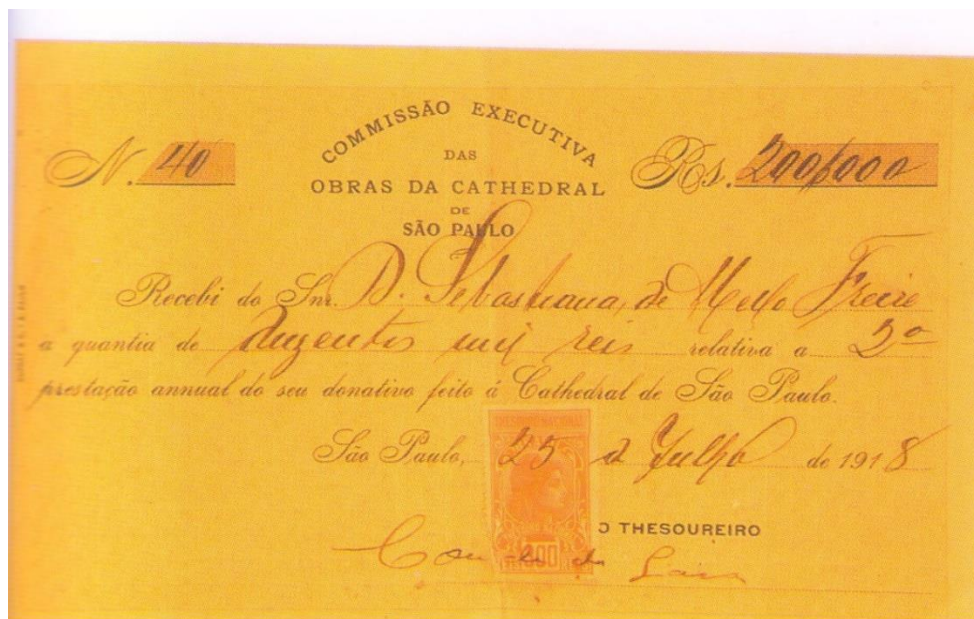 COMMISSÃO EXECUTIVA
DAS
OBRAS DA CATHEDRAL
DE
SÃO PAULO
N. 40
Rs. 200$000
Recebi do Snr. D. Sebastiana de Mello Freire
a quantia de duzentos mil reis relativa a
prestação annual do seu donativo feito á Cathedral de São Paulo.
São Paulo, 25 d Julho de 1918
THESOURO NACIONAL
300
O THESOUREIRO